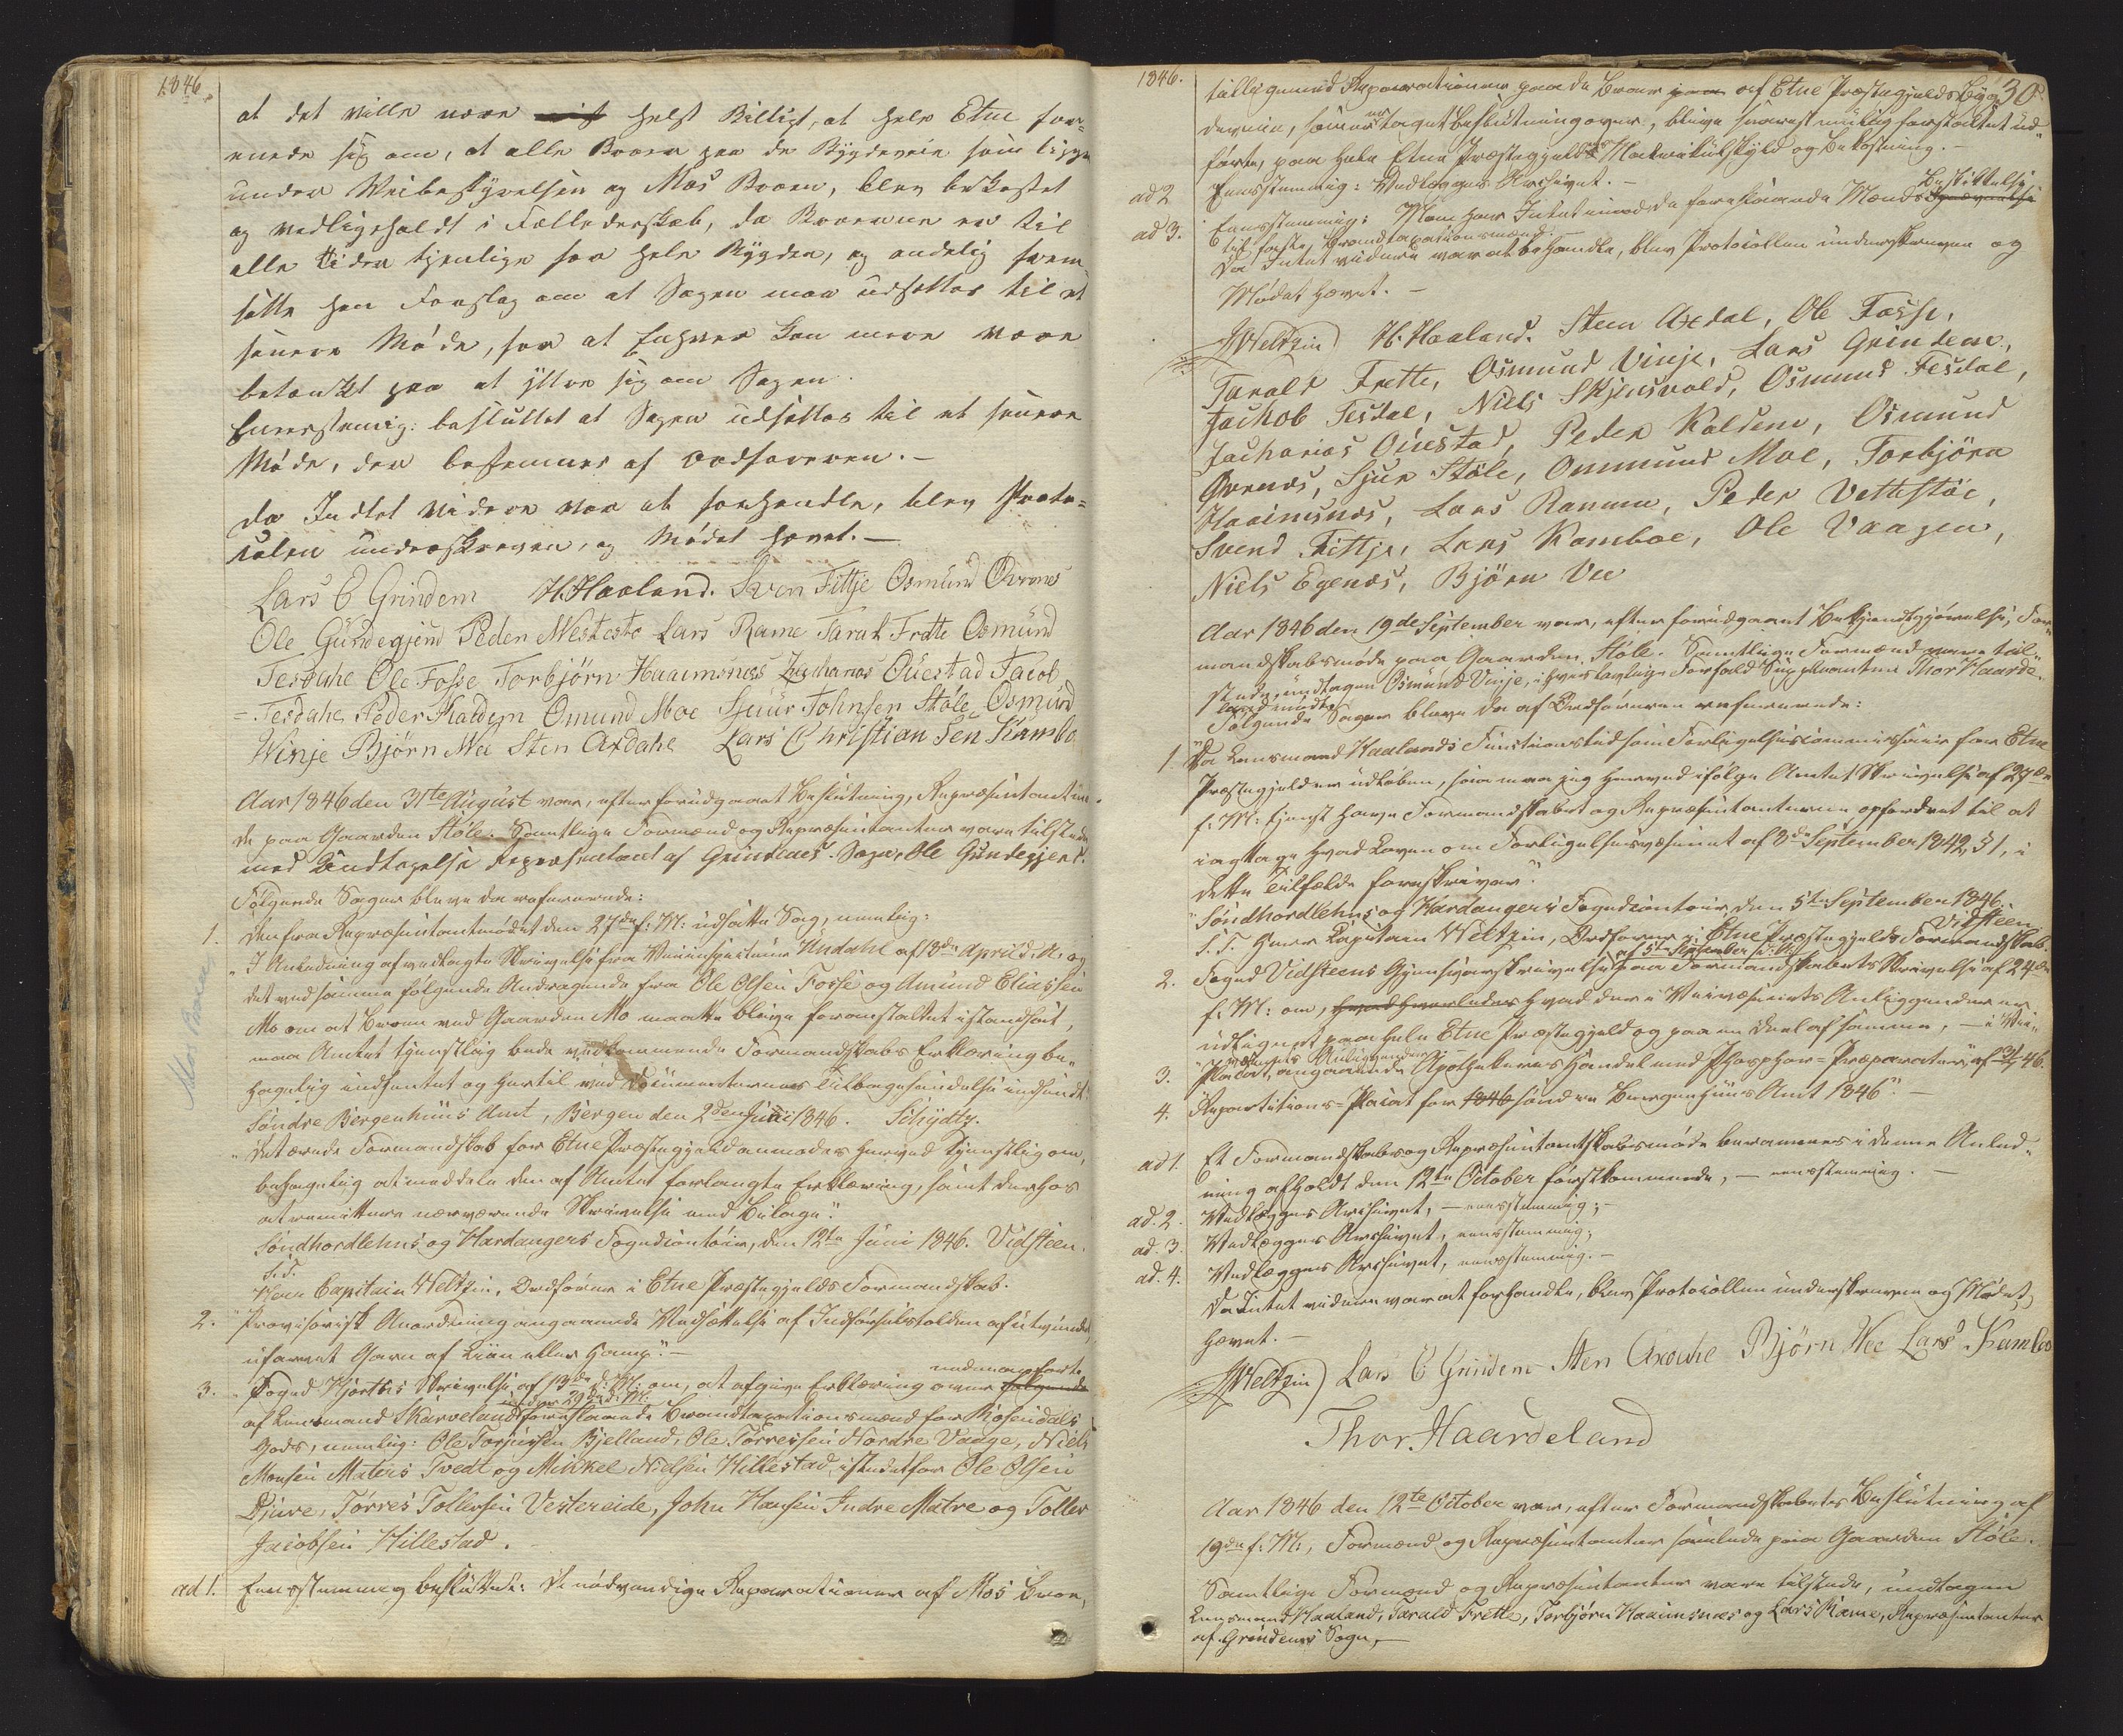 1846.
at det ville være helst Billigt, at hele Etne for-
enede sig om, at alle Broer paa de Bygdeveie som ligge
under Veibestyrelsen og Mos Broen, blev bekostet
og vedligeholdt i Fælledsskab, da Broerne er til
alle tider tjenlige for hele Bygden, og endelig frem-
satte han Forslag om at Sagen maa udsættes til et
senere Møde, for at Enhver kan være
betænkt paa at yttre sig om Sagen.
Eenstemig: besluttet at Sagen udsættes til et senere
Møde, der bestemmes af Ordføreren.-
da Indtet videre var at forhandle, blev Proto-
colen underskreven, og Mødet hævet.-
Lars C Grindem H. Haaland. Sven Fittje Osmund Øvrenes
Ole Gundegjerd Peder Vestestø Lars Rame Tarald Frette Osmund
Tesdahl Ole Fosse Torbjørn Haaimsnæs Zacharias Øuestad Jacob
Tesdahl Peder Kaldem Omund Moe Sjuur Johnsen Støle Osmund
Winje Bjørn Wee Sten Axdahl Lars Christian Sen Kambo
Aar 1846 den 31te August var, efter forudgaaet Beslutning, Repræsentantmø-
de paa Gaarden Støle. Samtlige Formænd og Repræsentanter vare tilstede
med Undtagelse Repræsentant af Grindems Sogn, Ole Gundegjerd.
Følgende Sager bleve da refererede:
1. Den fra Repræsentantmødet den 27de f: M: udsatte Sag, nemlig:
"I Anledning af vedlagte Skrivelse fra Veiinspecteur Undahl af 13de April d. A. og
det ved samme følgende Andragende fra Ole Olsen Fosse og Amund Eliassen
Mos Broen
Mo om at Broen ved Gaarden Mo maatte blive foranstaltet istandsat,
maa Amtet tjenstlig bede vedkommende Formandskabs Erklæring be-
hagelig indhentet og hertil ved Documenternes Tilbagesendelse indsendt.
Søndre Bergenhuus Amt, Bergen den 2den Juni 1846. Schydtz.
"Det ærede Formandskab for Etne Præstegjeld anmodes herved tjenstlig om,
behagelig at meddele den af Amtet forlangte Erklæring, samt derhos
at remittere nærværende Skrivelse med Bilage".
Søndhordlehns og Hardangers Fogedcontoir, den 12te Juni 1846. Vidsteen.
S. T.
Herr Capitain Weltzin, Ordfører i Etne Præstegjelds Formandskab.
2. "Provisorisk Anordning angaaende Nedsættelse af Indførselstolden af utvundet,
ufarvet Garn af Liin eller Hamp".-
3. Foged Hjorths Skrivelse af 13de d: M: om, at afgive Erklæring over nedenanførte
af Lensmand Skarveland under 29de d: M: foreslaaende Brandtaxationsmænd for Rosendals
Gods, nemlig: Ole Torjussen Bjelland, Ole Tørressen Nordre Vaage, Niels
Monsen Maters Tvedt og Mikkel Nielsen Hillestad, istedetfor Ole Olsen
Djuve, Tørres Tollersen Vestereide, John Hansen Indre Matre og Toller
Jacobsen Hillestad.
ad 1. Eenstemmig besluttet: De nødvendige Reparationer af Mos Broe,
1846.
30
tilligemed Reparationer paa de Broer af Etne Præstegjelds Byg-
deveie, som er taget Beslutning over, blive snarest mulig foranstaltet ud-
førte, paa hele Etne Præstegjelds Matrikulskyld og Bekostning.-
ad 2 Eenstemmig: Vedlægges Archivet.-
ad 3. Eenstemmig: Man har Intet imod de foreslaaende Mænds Beskikkelse
til faste Brandtaxationsmænd.-
Da Intet videre var at behandle, blev Protocollen underskreven og
Mødet hævet.-
JWeltzin H. Haaland. Sten Axdal, Ole Fosse,
Tarald Frette, Osmund Vinje, Lars Grindem,
Jachob Tesdal, Niels Skjensvold, Osmund Tesdal,
Zacharias Øuestad, Peder Kaldem, Osmund
Øvrenæs, Sjur Støle, Ommund Moe, Torbjørn
Haaimsnæs, Lars Ramme, Peder Vettestøe,
Svend Fittje, Lars Kamboe, Ole Vaagen,
Niels Egenæs, Bjørn Vee
Aar 1846 den 19de September var, efter forudgaaet Bekjendtgjørelse, For-
mandskabsmøde paa Gaarden Støle. Samtlige Formænd vare til-
stede, undtagen Osmund Vinje, i hvis lovlige Forfald Suppleanten Thor Haarde-
land mødte.
Følgende Sager bleve da af Ordføreren refererede:
1. "Da Lensmand Haalands Functionstid som Forligelsescommissair for Etne
Præstegjeld er udløben, saa maa jeg herved ifølge Amtets Skrivelse af 27de
f: M: tjenst have Formandskabet og Repræsentanterne opfordret til at
iagttage hvad Loven om Forligelsesvæsenet af 3de September 1842, § 1, i
dette Tilfælde foreskriver".
"Søndhordlehns og Hardangers Fogedcontoir, den 5te September 1846.
Vidsteen
S. T. Herr Capitain Weltzin, Ordfører i Etne Præstegjelds Formandskab.
2. Foged Vidsteens Gjensvarskrivelse af 5te September d: M: paa Formandskabets Skrivelse af 24de
f: M: om, hvad der i Veivæsenets Anliggender er
udlignet paa hele Etne Præstegjeld og paa en Deel af samme,- i Vei-
væsenets Anliggender.
3. "Placat, angaaende Apothekeres Handel med Phosphor-Præparater", af 46.
4. Repartitions-Placat for søndre Bergenhuus Amt 1846".-
ad 1. Et Formandskabs og Repræsentantskabsmøde berammes i denne Anled-
ning afholdt den 12te October førstkommende,- eenstemmig.-
ad. 2. Vedlægges Archivet,- eenstemmig;-
ad. 3. Vedlægges Archivet, eenstemmig;
ad. 4. Vedlægges Archivet, eenstemmig.-
Da Intet videre var at forhandle, blev Protocollen underskreven og Mødet
hævet.-
JWeltzin Lars C Grindem Sten Axdahl Bjørn Wee Lars Kamboe
Thor Haardeland
Aar 1846 den 12te October var, efter Formandskabets Beslutning af
19de f: M:, Formænd og Repræsentanter samlede paa Gaarden Støle.
Samtlige Formænd og Repræsentanter vare tilstede, undtagen
Lensmand Haaland, Tarald Frette, Torbjørn Haaimsnæs og Lars Rame, Repræsentanter
af Grindems Sogn,-